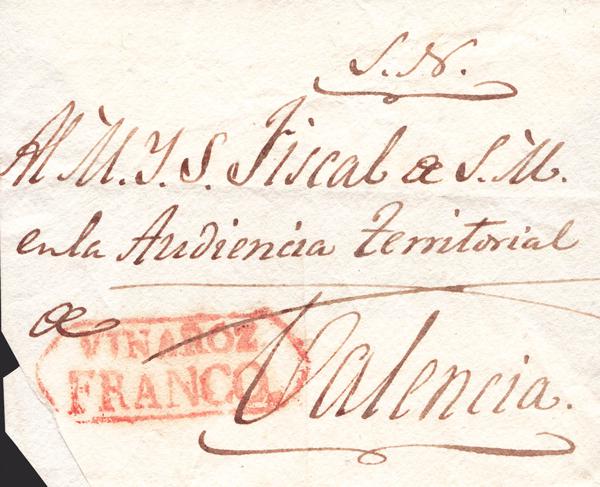 S. N.
Al M. Y. S. Fiscal de S. M.
en la Audiencia Territorial
de
Valencia.
VINAROZ
FRANCO.